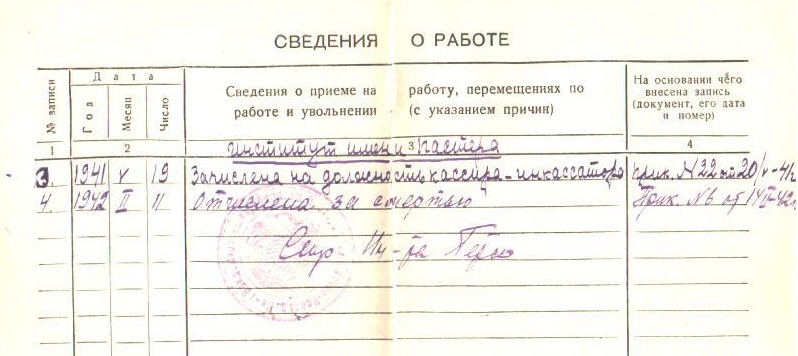 СВЕДЕНИЯ О РАБОТЕ
№ записи
Дата
Год
Месяц
Число
Сведения о приеме на работу, перемещениях по
работе и увольнении (с указанием причин)
На основании чего
внесена запись
(документ, его дата
и номер)
1 2 3 4
Институт имени Пастера
3. 1941 V 19 Зачислена на должность кассира-инкассатора прик. N 22 от 20/V-41г
4. 1942 II 11 Отчислена за смертью Прик. N6 от 14 II-42г.